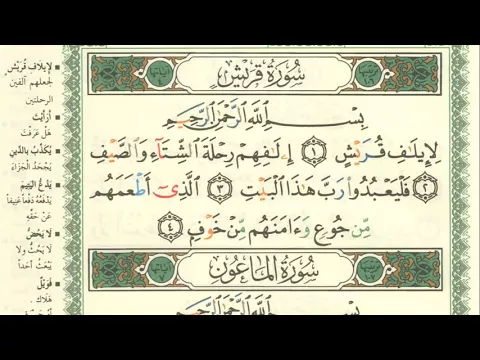 سُورَةُ قُرَيْشٍ
بِسْمِ اللَّهِ الرَّحْمَٰنِ الرَّحِيمِ
لِإِيلَٰفِ قُرَيْشٍ ١ إِۦلَٰفِهِمْ رِحْلَةَ الشِّتَآءِ وَالصَّيْفِ
٢ فَلْيَعْبُدُوا۟ رَبَّ هَٰذَا الْبَيْتِ ٣ الَّذِىٓ أَطْعَمَهُم
مِّن جُوعٍ وَءَامَنَهُم مِّنْ خَوْفٍ ٤
سُورَةُ الْمَاعُونِ
بِسْمِ اللَّهِ الرَّحْمَٰنِ الرَّحِيمِ
لِإِيلَافِ قُرَيْشٍ
لجعلهم آلفين
الرحلتين
أَرَأَيْتَ
هَلْ عَرَفْتَ
يُكَذِّبُ بِالدِّينِ
يَجْحَدُ الْجَزَاءَ
يَدُعُّ الْيَتِيمَ
يَدْفَعُهُ دَفْعاً عَنِيفاً
عَنْ حَقِّهِ
لَا يَحُضُّ
لَا يَحُثُّ ولا
يَبْعَثُ أَحَداً
فَوَيْلٌ
هَلَاكٌ